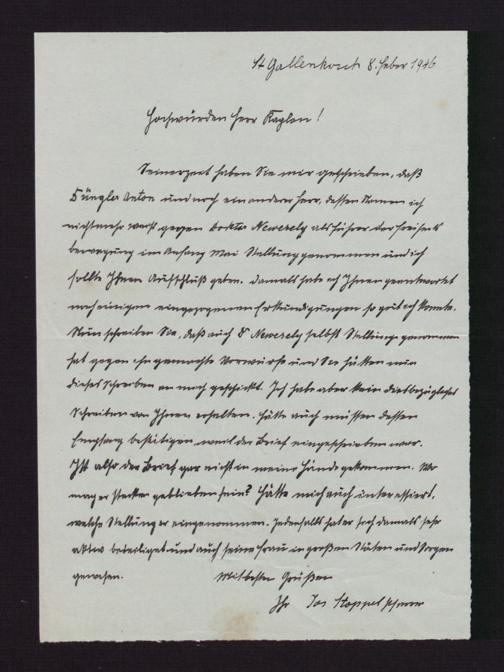 St Gallenkirch 8. Feber 1946
Hochwürden Herr Kaplan!
Seinerzeit haben Sie mir geschrieben, daß
Anton und noch ein anderer Herr, dessen Namen ich
nicht mehr weiß gegen Doktor Neweseły als Führer der Freiheits
bewegung im Anfang Mai Stellung genommen und ich
sollte Ihnen Aufschluß geben. Damals habe ich Ihnen geantwortet
nach einigen eingezogenen Erkundigungen so gut ich konnte.
Nun schreiben Sie, daß auch Dr Newesely selbst Stellung genommen
hat gegen ihn gemachte Vorwürfe und Sie hätten mir
dieses Schreiben an mich geschickt. Ich habe aber kein diesbezügliches
Schreiben von Ihnen erhalten. Hätte auch müssen dessen
Empfang bestätigen, weil der Brief eingeschrieben war.
Ist also der Brief gar nicht in meine Hände gekommen. Wo
mag er stecken geblieben sein? Hätte mich auch interessiert,
welche Stellung er eingenommen. Jedenfalls hat er sich damals sehr
aktiv beteiliget und auch seine Frau in großen Nöten und Sorgen
gewesen.
Mit besten Grüßen
Ihr Jos